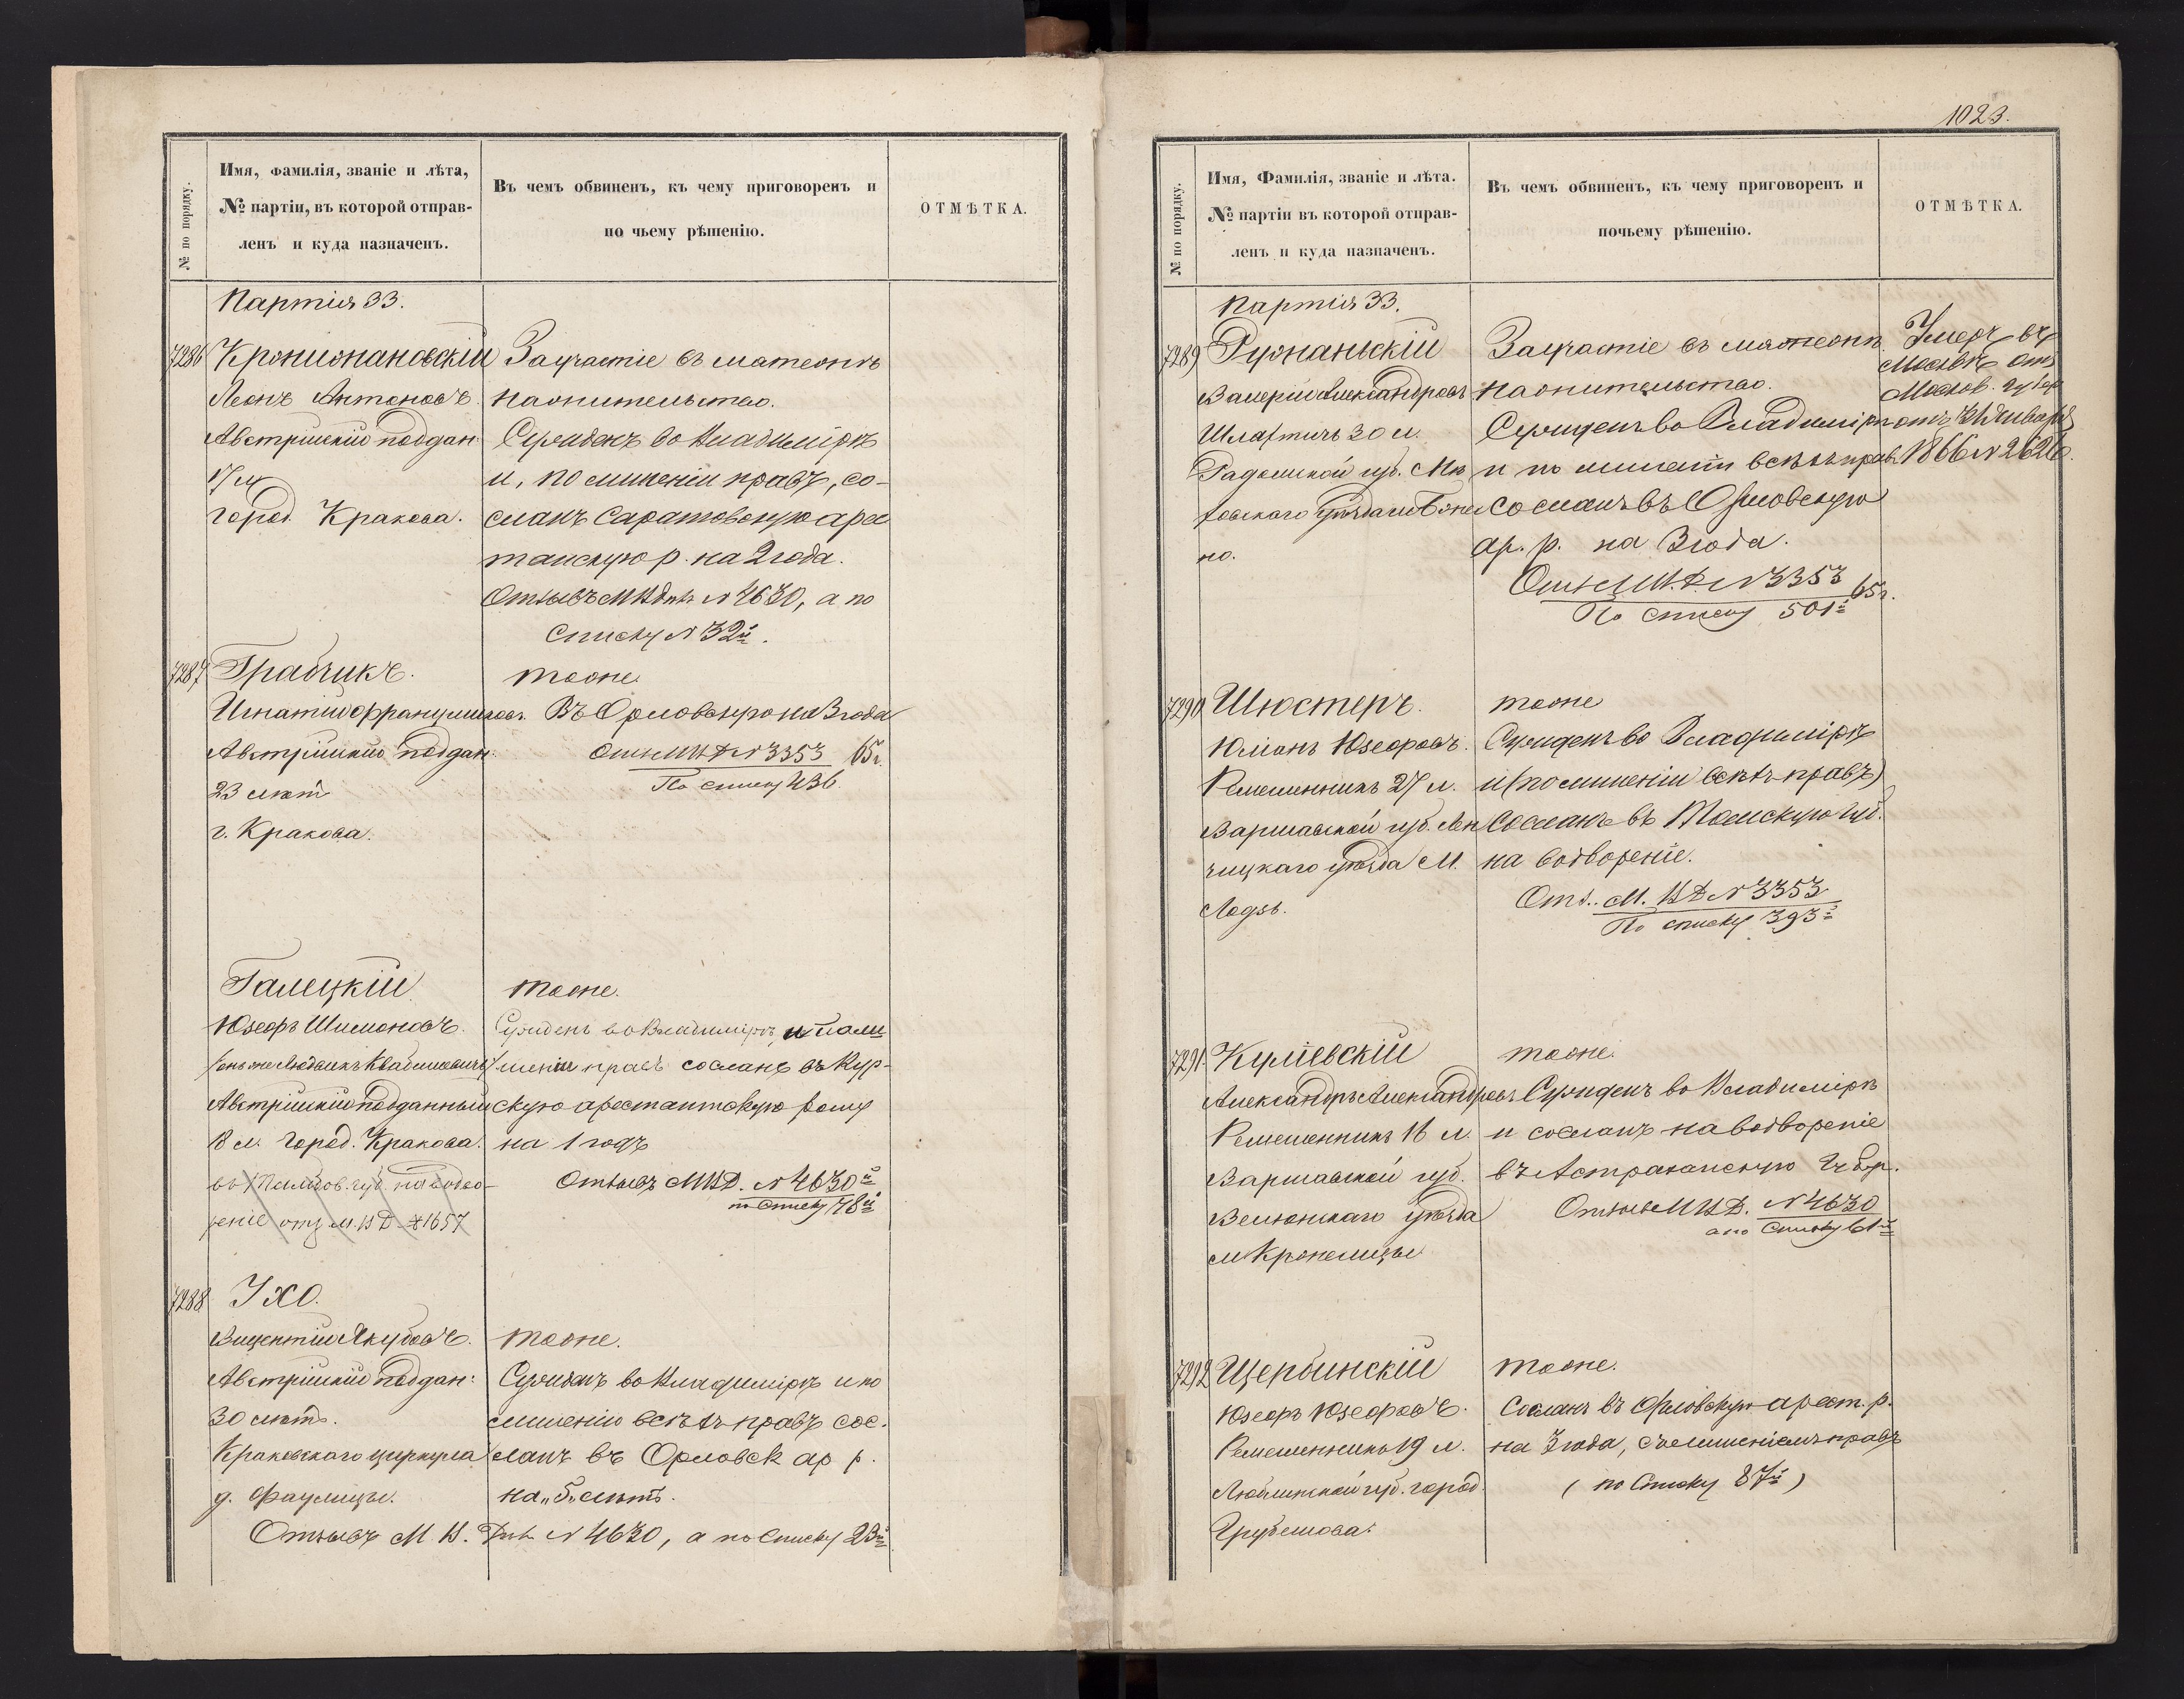 № по порядку.
Имя, фамилія, званіе и лѣта,
№ партіи, въ которой отправ-
ленъ и куда назначенъ.
Въ чемъ обвиненъ, къ чему приговоренъ и
по чьему рѣшенію.
ОТМѢТКА.
Партія 33.
7286
Леонъ Антоновъ.
Австрійскій поддан.
17 л.
Город. Кракова.
За участіе въ мятежнѣ
Сужденъ во Владимірѣ
и, по лишеніи правъ, со-
сланъ Саратовскую арес
танскую р. на 2 года.
Отзывъ МВД № 4630, а по
Списку № 32й.
7287
Грабчикъ.
Игнатій Францишков.
Австрійскій поддан.
23 лѣт
г. Кракова.
тоже.
Въ Орловскую на 3 года
Отн МВД № 3353 65г.
По списку 436
Галецкій
Юзефъ Шимоновъ.
Австрійскій подданный
18 л. Город. Кракова.
въ губ. на водво-
реніе отз М.ВД № 1657
тоже.
Сужденъ во Владимірѣ и по ли
шеніи правъ сосланъ въ Кур-
скую арестантскую роту
на 1 годъ
Отзывъ МВД. № 4630й
по списку 78й
7288
Ухо.
Вицентій Якубовъ.
Австрійскій поддан:
30 лѣтъ.
Краковскаго циркула
д.
тоже.
Сужденъ во Владимірѣ и по
лишенію всѣхъ правъ сос.
ланъ въ Орловск ар р.
на "5" лѣтъ.
Отзывъ М В. Дѣл № 4630, а по Списку 23й
1023.
№ по порядку.
Имя, Фамилія, званіе и лѣта.
№ партіи въ которой отправ-
ленъ и куда назначенъ.
Въ чемъ обвиненъ, къ чему приговоренъ и
почьему рѣшенію.
ОТМѢТКА.
Партія 33.
7289
Ружаньскій
Валерій Александровъ
Шляхтичъ 30 л.
Радомской губ. Мѣ
ховскаго уѣзда
но.
За участіе въ мятежнѣ
Сужденъ во Владимірѣ
и по лишеніи всѣхъ прав
сосланъ въ Орловскую
ар. р. на 3 года.
Отн М.В.Д. № 3353 65г.
По списку 501й
Умеръ въ
Москвѣ отз
Москов. Губер
отъ Января
1866 № 2626.
7290
Шюстеръ.
Юліанъ Юзефовъ.
Ремешникъ 27 л.
Варшавской губ. Лен
чицкаго уѣзда М.
Лодзь.
тоже
Сужденъ во Владимірѣ
и (по лишеніи всѣхъ правъ)
сосланъ въ Томскую губ.
на водвореніе.
Отз. М. ВД № 3353
По списку 393й
7291
Александръ Александровъ
Ремешникъ 16 л.
Варшавской губ.
Велюнскаго уѣзда
тоже.
Сужденъ во Владимірѣ
и сосланъ на водвореніе
въ Астраханскую Губер.
Отзывъ МВД. № 4630
а по Списку 61й
7292
Щербинскій
Юзефъ Юзефовъ.
Ремешникъ 19 л.
Люблинской губ. город.
Грубешова.
тоже.
Сосланъ въ Орловскую арест. р.
на 3 года, съ лишеніемъ правъ
( по Списку 87й )